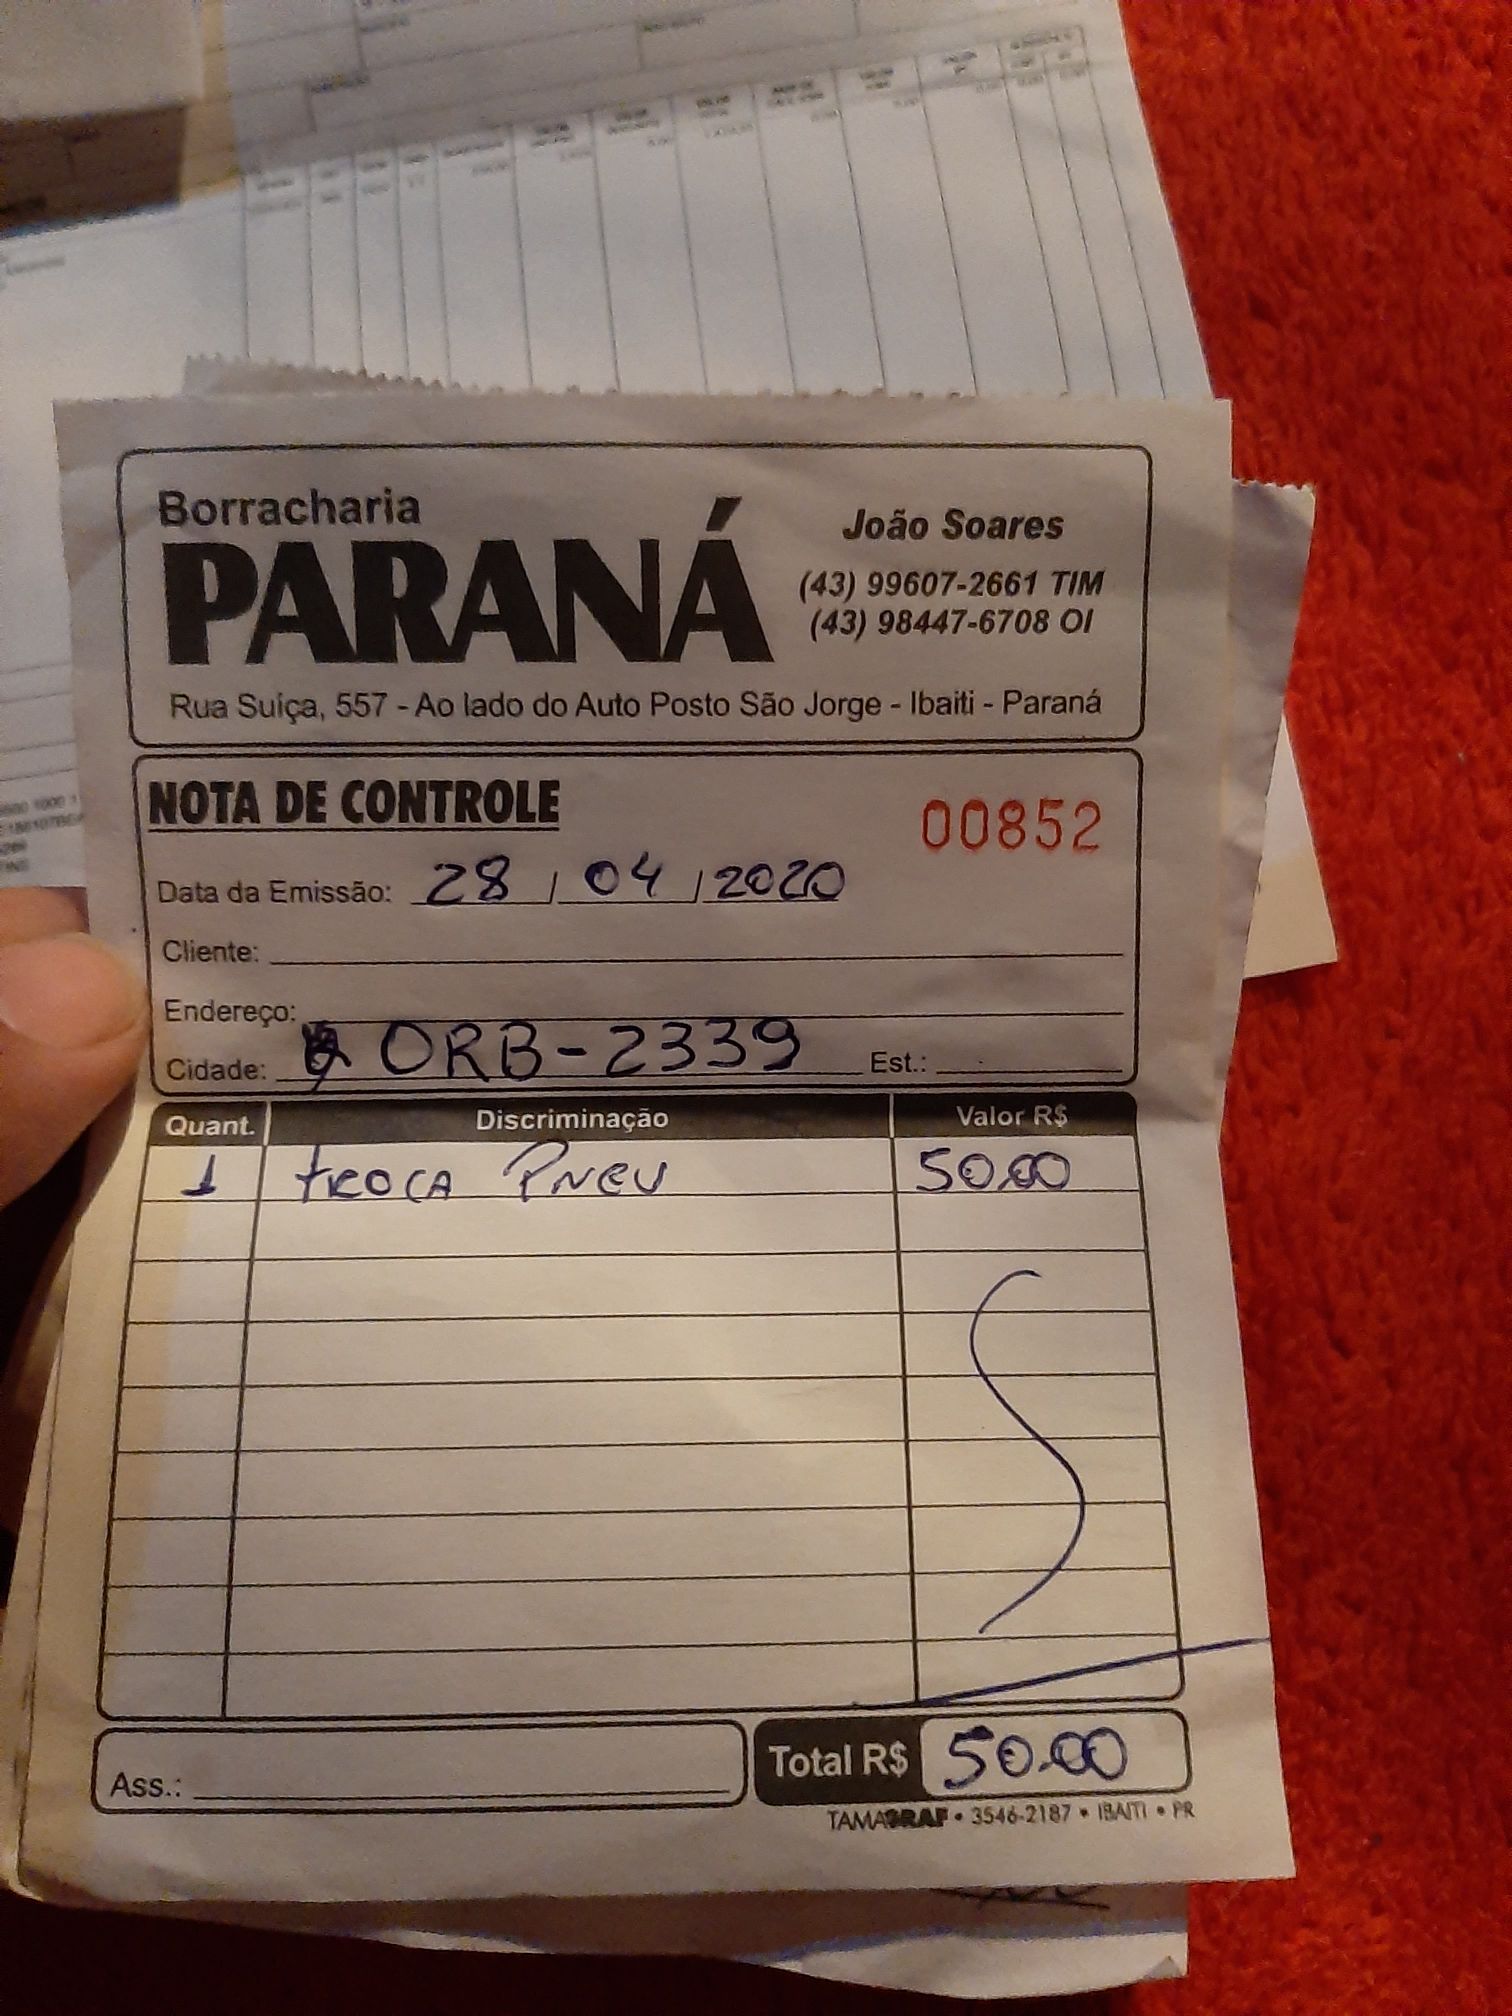 Borracharia
PARANÁ
João Soares
(43) 99607-2661 TIM
(43) 98447-6708 OI
Rua Suíça, 557 - Ao lado do Auto Posto São Jorge - Ibaiti - Paraná
NOTA DE CONTROLE
00852
Data da Emissão: 28 / 04 / 2020
Cliente:
Endereço:
Cidade: ORB-2339 Est.:
Quant. Discriminação Valor R$
1 troca Pneu 50.00
Ass.:
Total R$ 50.00
TAMAGRAF • 3546-2187 • IBAITI • PR